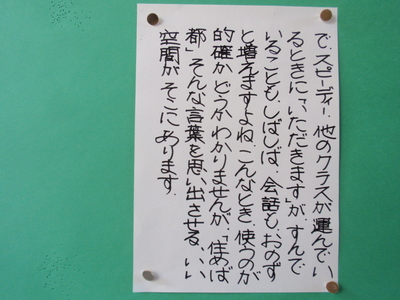 で、スピーディー。他のクラスが運んでい
るときに「いただきます」が、すんで
いることも、しばしば。会話も、おのず
と増えますよね。こんなとき、使うのが
的確かどうかわかりませんが、「住めば
都」そんな言葉を思い出させる、いい
空間が、そこにあります。